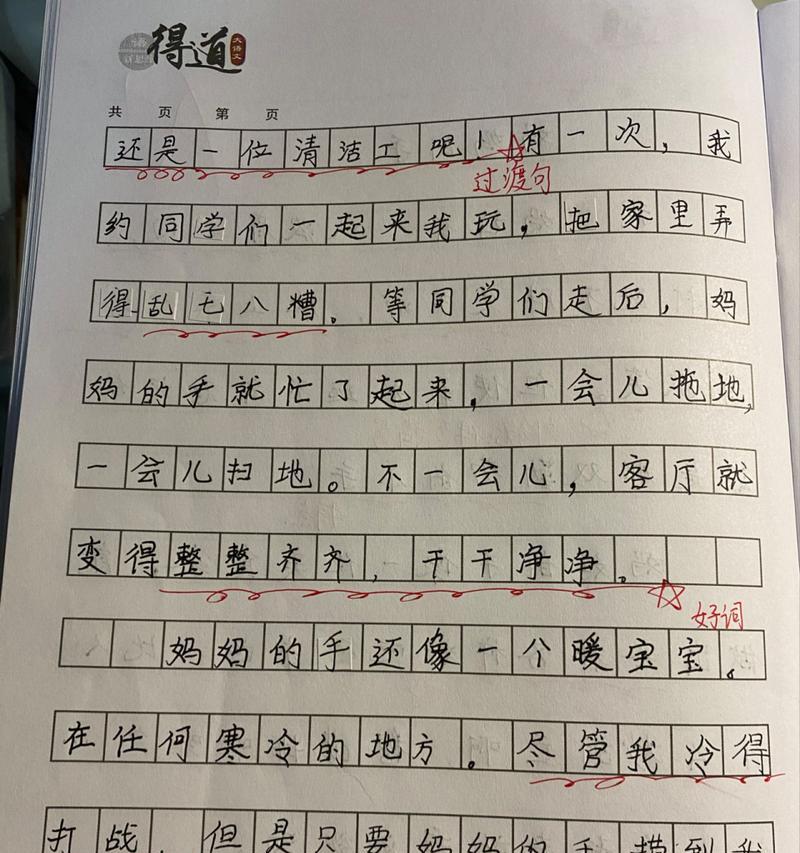 得道
大语文
共 页 第 页
还是一位清洁工呢!有一次,我
过渡句
约同学们一起来我玩,把家里弄
得乱七八糟。等同学们走后,妈
妈的手就忙了起来,一会儿拖地,
一会儿扫地。不一会儿,客厅就
变得整整齐齐,干干净净。
好词
妈妈的手还像一个暖宝宝。
在任何寒冷的地方。尽管我冷得
打战,但是只要妈妈的手